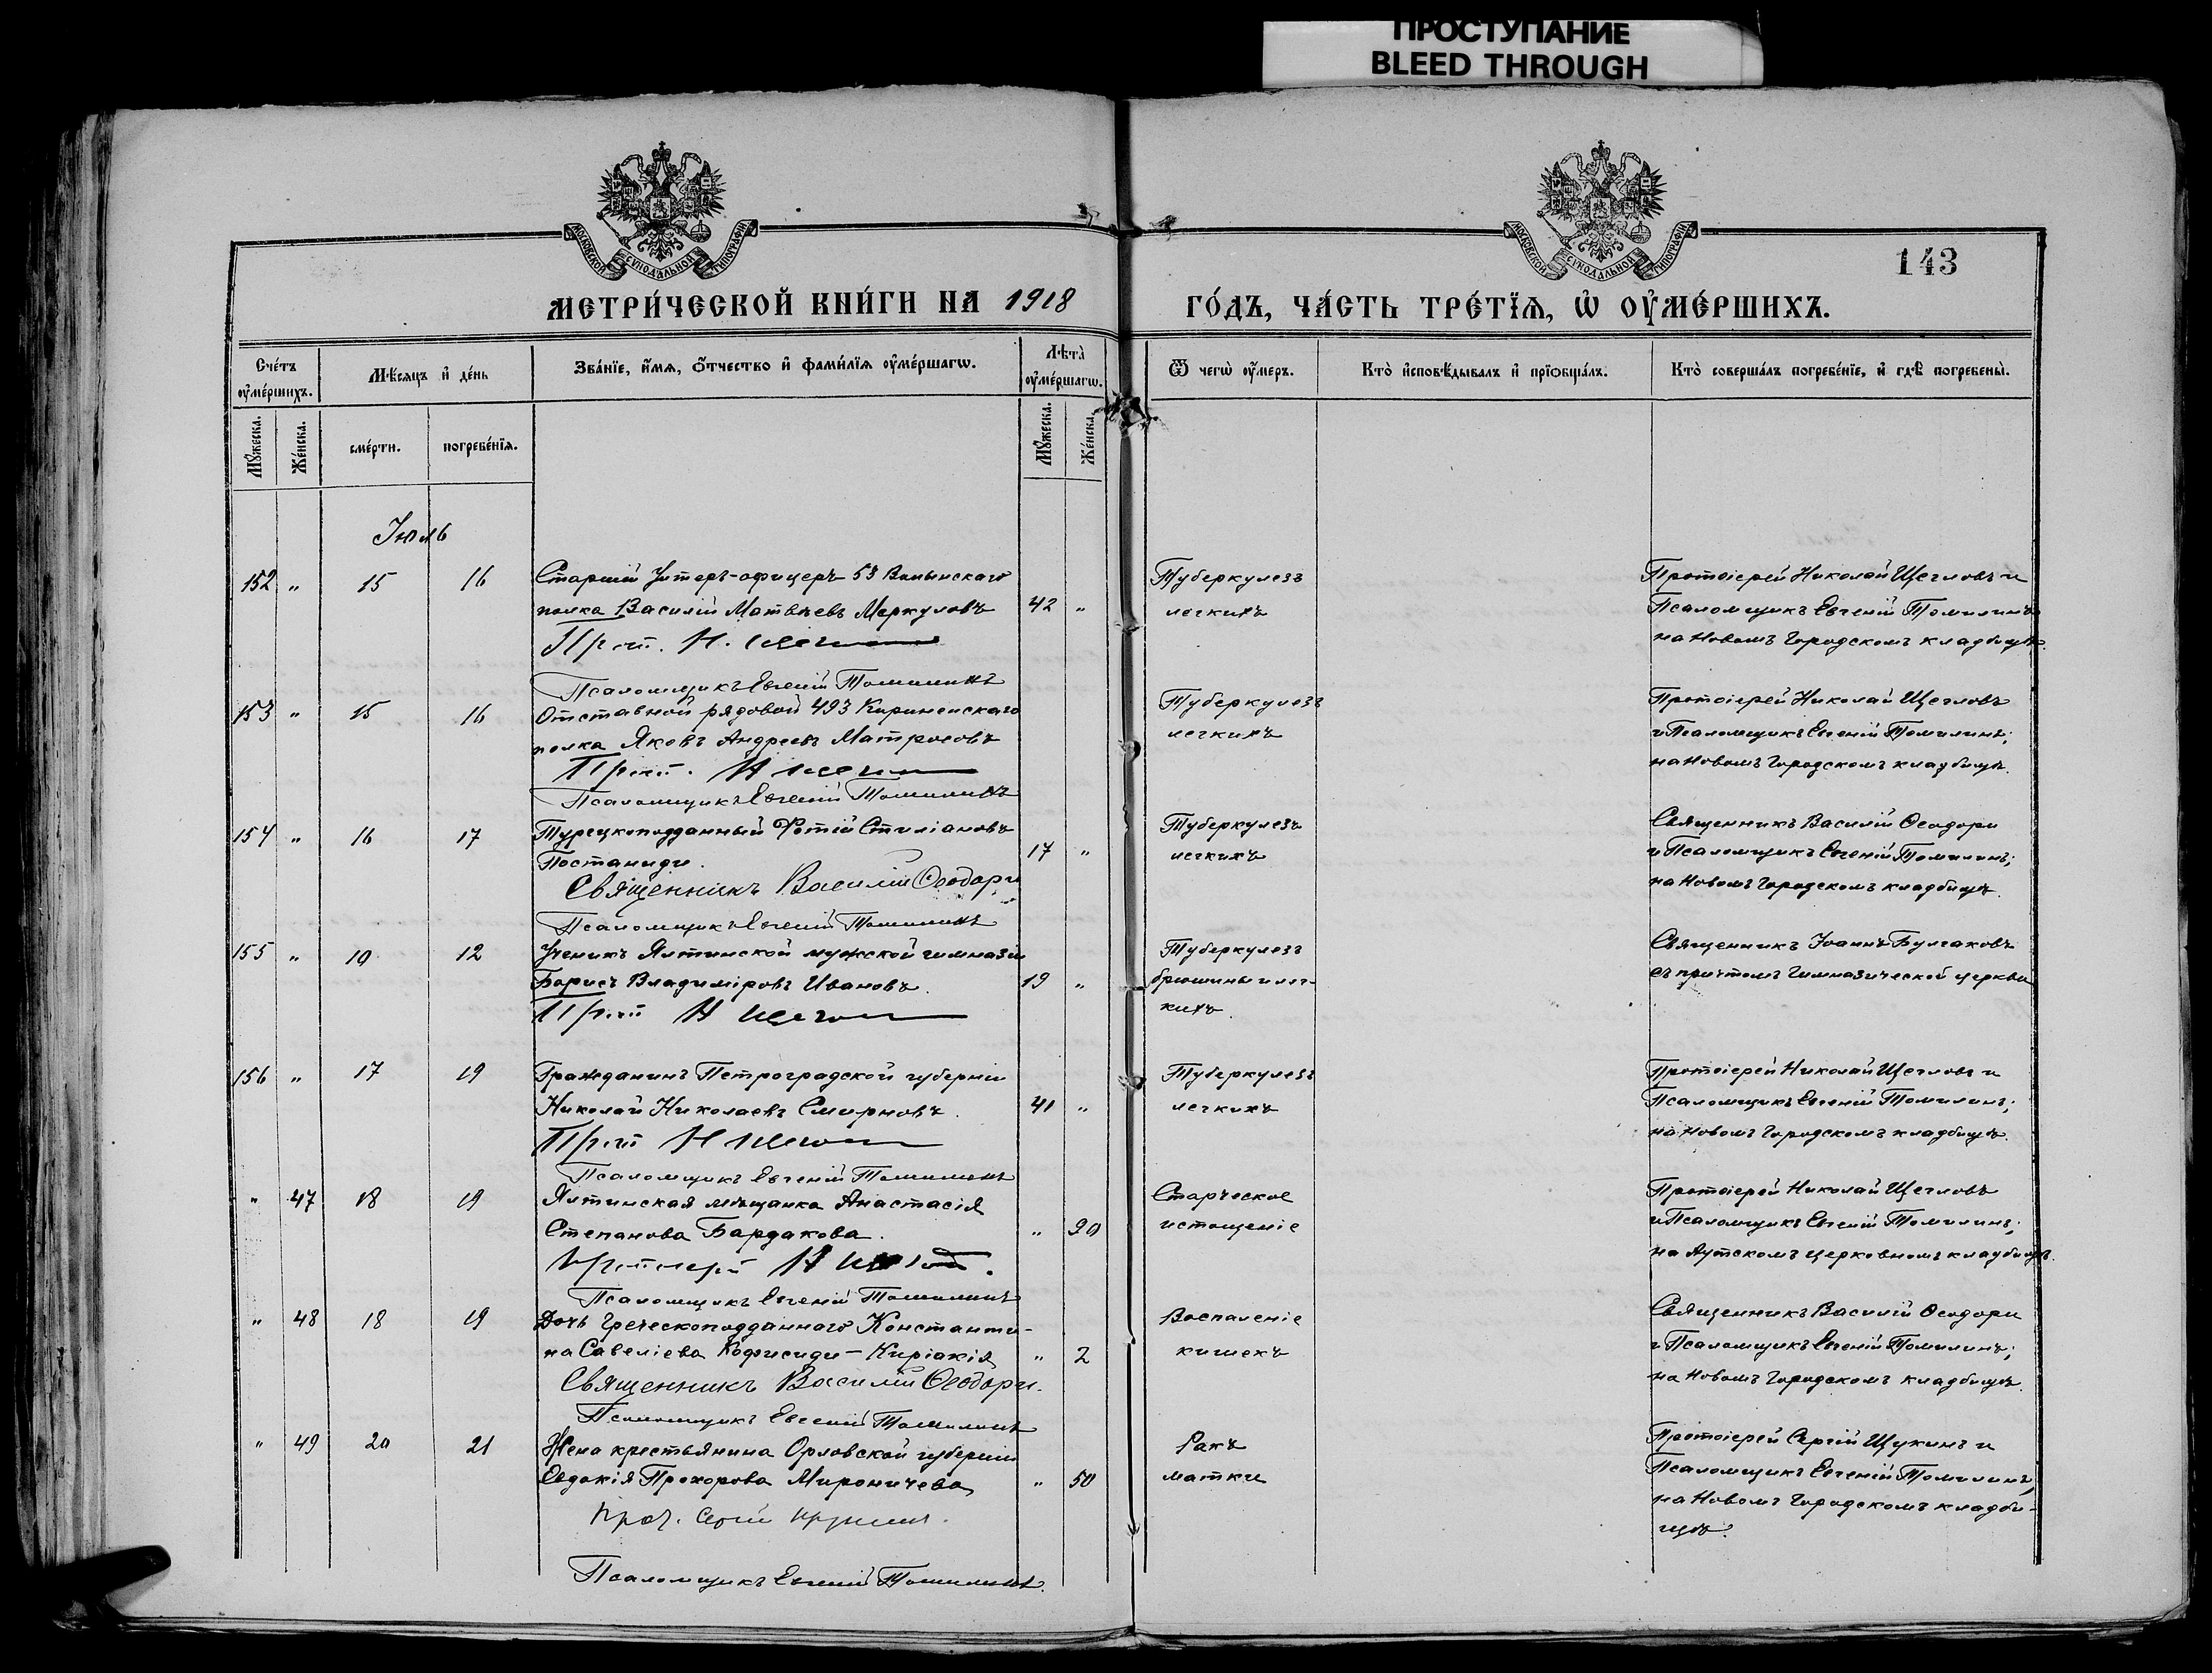 ПРОСТУПАНИЕ
BLEED THROUGH
МОСКОВСКОЙ СѴНОДАЛЬНОЙ ТИПОГРАФІИ
МОСКОВСКОЙ СѴНОДАЛЬНОЙ ТИПОГРАФІИ
143
МЕТРИ́ЧЕСКОЙ КНИ́ГИ НА 1918
ГО́ДЪ, ЧА́СТЬ ТРЕ́ТЇѦ, Ѡ҆ ОУ҆МЕ́РШИХЪ.
Сче́тъ
оу҆ме́ршихъ.
Мѣ́сяцъ и҆ де́нь
Зва́нїе, и҆́мѧ, ѻ҆́тчество и҆ фами́лїѧ оу҆ме́ршагѡ.
Лѣта̀
оу҆ме́ршагѡ.
Ѿ чегѡ̀ оу҆́меръ.
Кто̀ и҆сповѣ́дывалъ и҆ прїѡбща́лъ.
Кто̀ соверша́лъ погребе́нїе, и҆ гдѣ̀ погребены̀.
Мꙋ́жеска.
Же́нска.
сме́рти.
погребе́нїѧ.
Мꙋ́жеска.
Же́нска.
Іюль
152 " 15 16 Старшій Унтеръ-офицеръ 53 Волынскаго
полка Василій Матвѣевъ Меркуловъ 42 "
Прот. Н. Щегловъ
Псаломщикъ Евгеній Томилинъ
Туберкулезъ
легкихъ
Протоіерей Николай Щегловъ и
Псаломщикъ Евгеній Томилинъ
на Новомъ Городскомъ кладбищѣ.
153 " 15 16 Отставной рядовой 493 Киринскаго
полка Яковъ Андреевъ Матросовъ
Прот. Н Щегловъ
Псаломщикъ Евгеній Томилинъ
Туберкулезъ
легкихъ
Протоіерей Николай Щегловъ
и Псаломщикъ Евгеній Томилинъ;
на Новомъ Городскомъ кладбищѣ.
154 " 16 17 Турецкоподданный Фотій Стиліановъ
Постаниди. 17 "
Священникъ Василій Ѳеодори
Псаломщикъ Евгеній Томилинъ
Туберкулезъ
легкихъ
Священникъ Василій Ѳеодори
и Псаломщикъ Евгеній Томилинъ;
на Новомъ Городскомъ кладбищѣ.
155 " 10 12 Ученикъ Ялтинской мужской гимназіи
Борисъ Владиміровъ Ивановъ. 19 "
Прот Н Щегловъ
Туберкулезъ
брюшины и лег-
кихъ.
Священникъ Іоаннъ Булгаковъ
съ причтомъ Гимназической церкви
156 " 17 19 Гражданинъ Петроградской губерніи
Николай Николаевъ Смирновъ. 41 "
Прот Н Щегловъ
Псаломщикъ Евгеній Томилинъ
Туберкулезъ
легкихъ
Протоіерей Николай Щегловъ и
Псаломщикъ Евгеній Томилинъ;
на Новомъ Городскомъ кладбищѣ.
" 47 18 19 Ялтинская мѣщанка Анастасія
Степанова Бардакова. " 90
Протоіерей Н Щегловъ.
Псаломщикъ Евгеній Томилинъ
Старческое
истощеніе
Протоіерей Николай Щегловъ
и Псаломщикъ Евгеній Томилинъ;
на Аутскомъ церковномъ кладбищѣ.
" 48 18 19 Дочь Греческоподданнаго Константи-
на Савеліева Кофисиди - Киріакія " 2
Священникъ Василій Ѳеодори.
Псаломщикъ Евгеній Томилинъ
Воспаленіе
кишекъ
Священникъ Василій Ѳеодори
и Псаломщикъ Евгеній Томилинъ;
на Новомъ Городскомъ кладбищѣ.
" 49 20 21 Жена крестьянина Орловской губерніи
Евдокія Прохорова Мироничева " 50
Прот. Сергій Щукинъ.
Псаломщикъ Евгеній Томилинъ.
Ракъ
матки
Протоіерей Сергій Щукинъ и
Псаломщикъ Евгеній Томилинъ,
на Новомъ Городскомъ кладби-
щѣ.